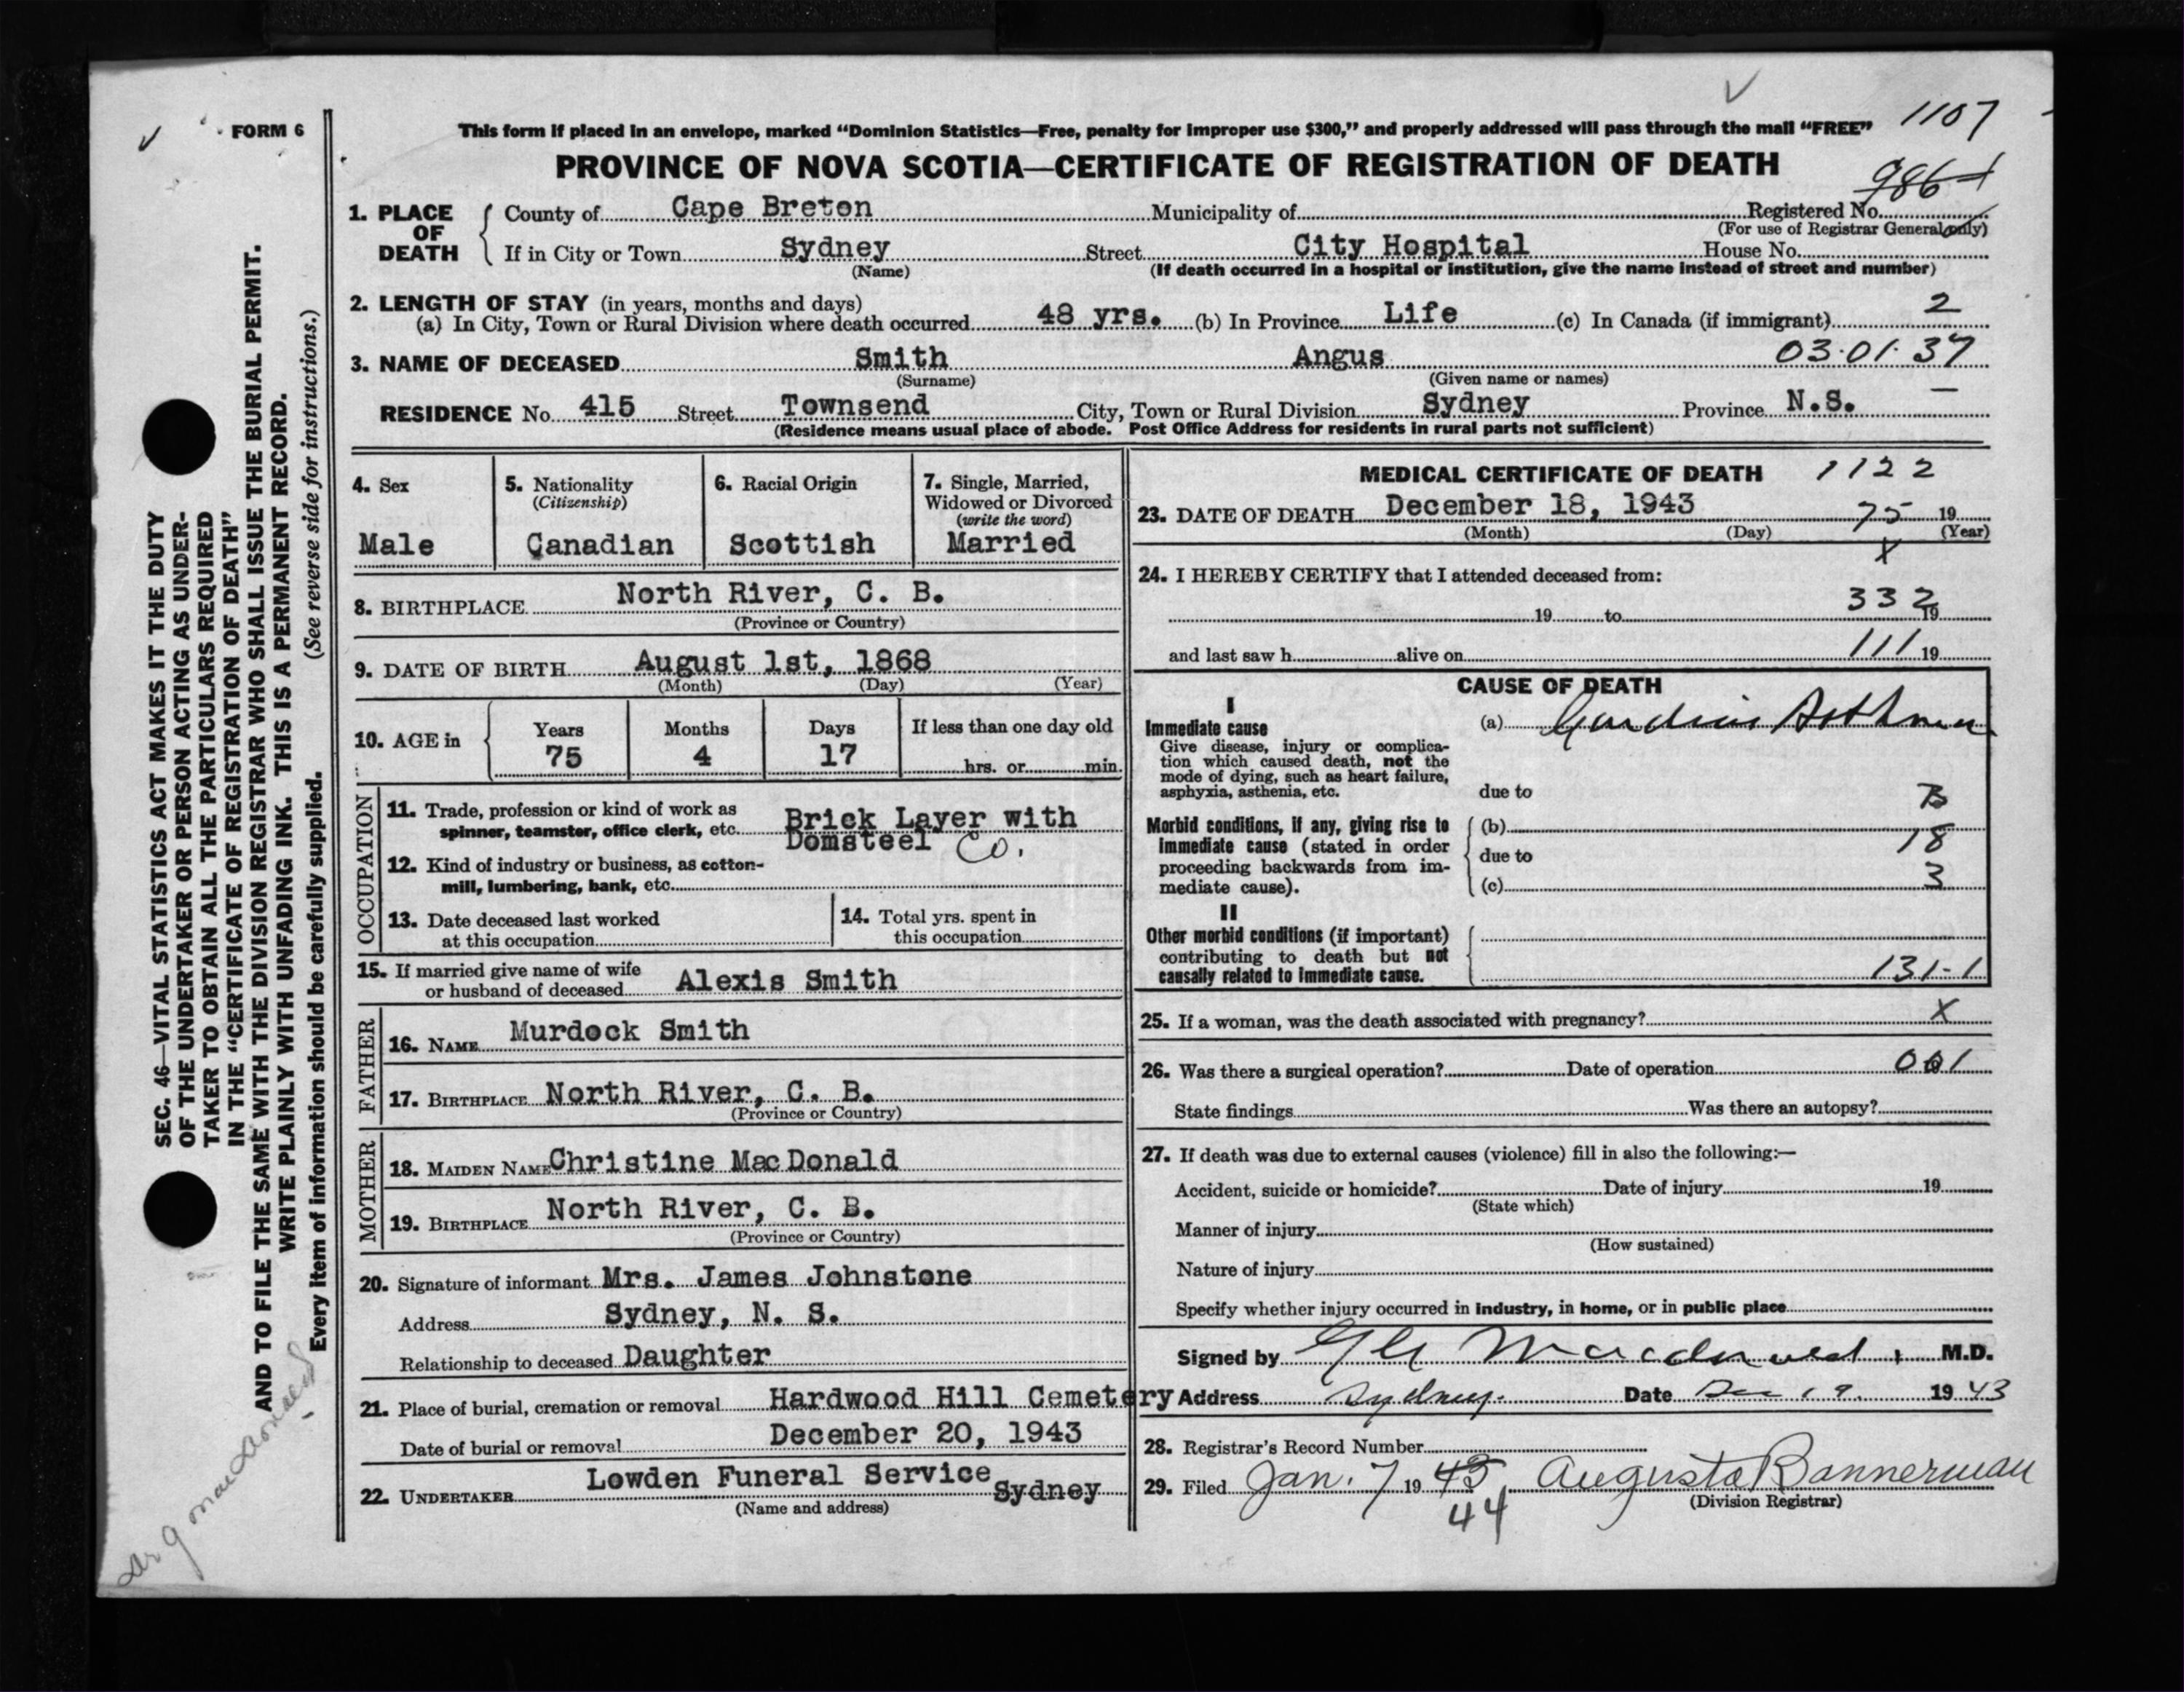 FORM 6
This form if placed in an envelope, marked "Dominion Statistics—Free, penalty for improper use $300," and properly addressed will pass through the mail "FREE"
1107
PROVINCE OF NOVA SCOTIA—CERTIFICATE OF REGISTRATION OF DEATH
986
1. PLACE OF DEATH
County of Cape Breton Municipality of Registered No.
(For use of Registrar General only)
If in City or Town Sydney Street City Hospital House No.
(Name) (If death occurred in a hospital or institution, give the name instead of street and number)
2. LENGTH OF STAY (in years, months and days)
(a) In City, Town or Rural Division where death occurred 48 yrs. (b) In Province Life (c) In Canada (if immigrant) 2
3. NAME OF DECEASED Smith Angus 03.01.37
(Surname) (Given name or names)
RESIDENCE No. 415 Street Townsend City, Town or Rural Division Sydney Province N.S. —
(Residence means usual place of abode. Post Office Address for residents in rural parts not sufficient)
4. Sex
Male
5. Nationality
(Citizenship)
Canadian
6. Racial Origin
Scottish
7. Single, Married,
Widowed or Divorced
(write the word)
Married
8. BIRTHPLACE North River, C. B.
(Province or Country)
9. DATE OF BIRTH August 1st, 1868
(Month) (Day) (Year)
10. AGE in
Years Months Days If less than one day old
75 4 17 hrs. or min.
OCCUPATION
11. Trade, profession or kind of work as
spinner, teamster, office clerk, etc. Brick Layer with
Domsteel Co.
12. Kind of industry or business, as cotton-
mill, lumbering, bank, etc.
13. Date deceased last worked
at this occupation
14. Total yrs. spent in
this occupation
15. If married give name of wife
or husband of deceased Alexis Smith
FATHER
16. NAME Murdock Smith
17. BIRTHPLACE North River, C. B.
(Province or Country)
MOTHER
18. MAIDEN NAME Christine MacDonald
19. BIRTHPLACE North River, C. B.
(Province or Country)
20. Signature of informant Mrs. James Johnstone
Address Sydney, N. S.
Relationship to deceased Daughter
21. Place of burial, cremation or removal Hardwood Hill Cemetery
Date of burial or removal December 20, 1943
22. UNDERTAKER Lowden Funeral Service Sydney
(Name and address)
MEDICAL CERTIFICATE OF DEATH 1122
23. DATE OF DEATH December 18, 1943 75 19
(Month) (Day) (Year)
X
24. I HEREBY CERTIFY that I attended deceased from:
19 to 332 19
and last saw h alive on 111 19
CAUSE OF DEATH
I
Immediate cause
Give disease, injury or complica-
tion which caused death, not the
mode of dying, such as heart failure,
asphyxia, asthenia, etc.
(a) Cardiac Asthma
due to
Morbid conditions, if any, giving rise to
immediate cause (stated in order
proceeding backwards from im-
mediate cause).
(b)
18
due to
(c) 3
II
Other morbid conditions (if important)
contributing to death but not
causally related to immediate cause.
131-1
25. If a woman, was the death associated with pregnancy? X
26. Was there a surgical operation? Date of operation 001
State findings Was there an autopsy?
27. If death was due to external causes (violence) fill in also the following:—
Accident, suicide or homicide? Date of injury 19
(State which)
Manner of injury
(How sustained)
Nature of injury
Specify whether injury occurred in industry, in home, or in public place
Signed by Macdonald, M.D.
Address Sydney. Date Dec 19. 1943
28. Registrar's Record Number
29. Filed Jan. 7 19 43 Augusta Bannerman
44
(Division Registrar)
SEC. 46—VITAL STATISTICS ACT MAKES IT THE DUTY
OF THE UNDERTAKER OR PERSON ACTING AS UNDER-
TAKER TO OBTAIN ALL THE PARTICULARS REQUIRED
IN THE "CERTIFICATE OF REGISTRATION OF DEATH"
AND TO FILE THE SAME WITH THE DIVISION REGISTRAR WHO SHALL ISSUE THE BURIAL PERMIT.
WRITE PLAINLY WITH UNFADING INK. THIS IS A PERMANENT RECORD.
Every item of information should be carefully supplied. (See reverse side for instructions.)